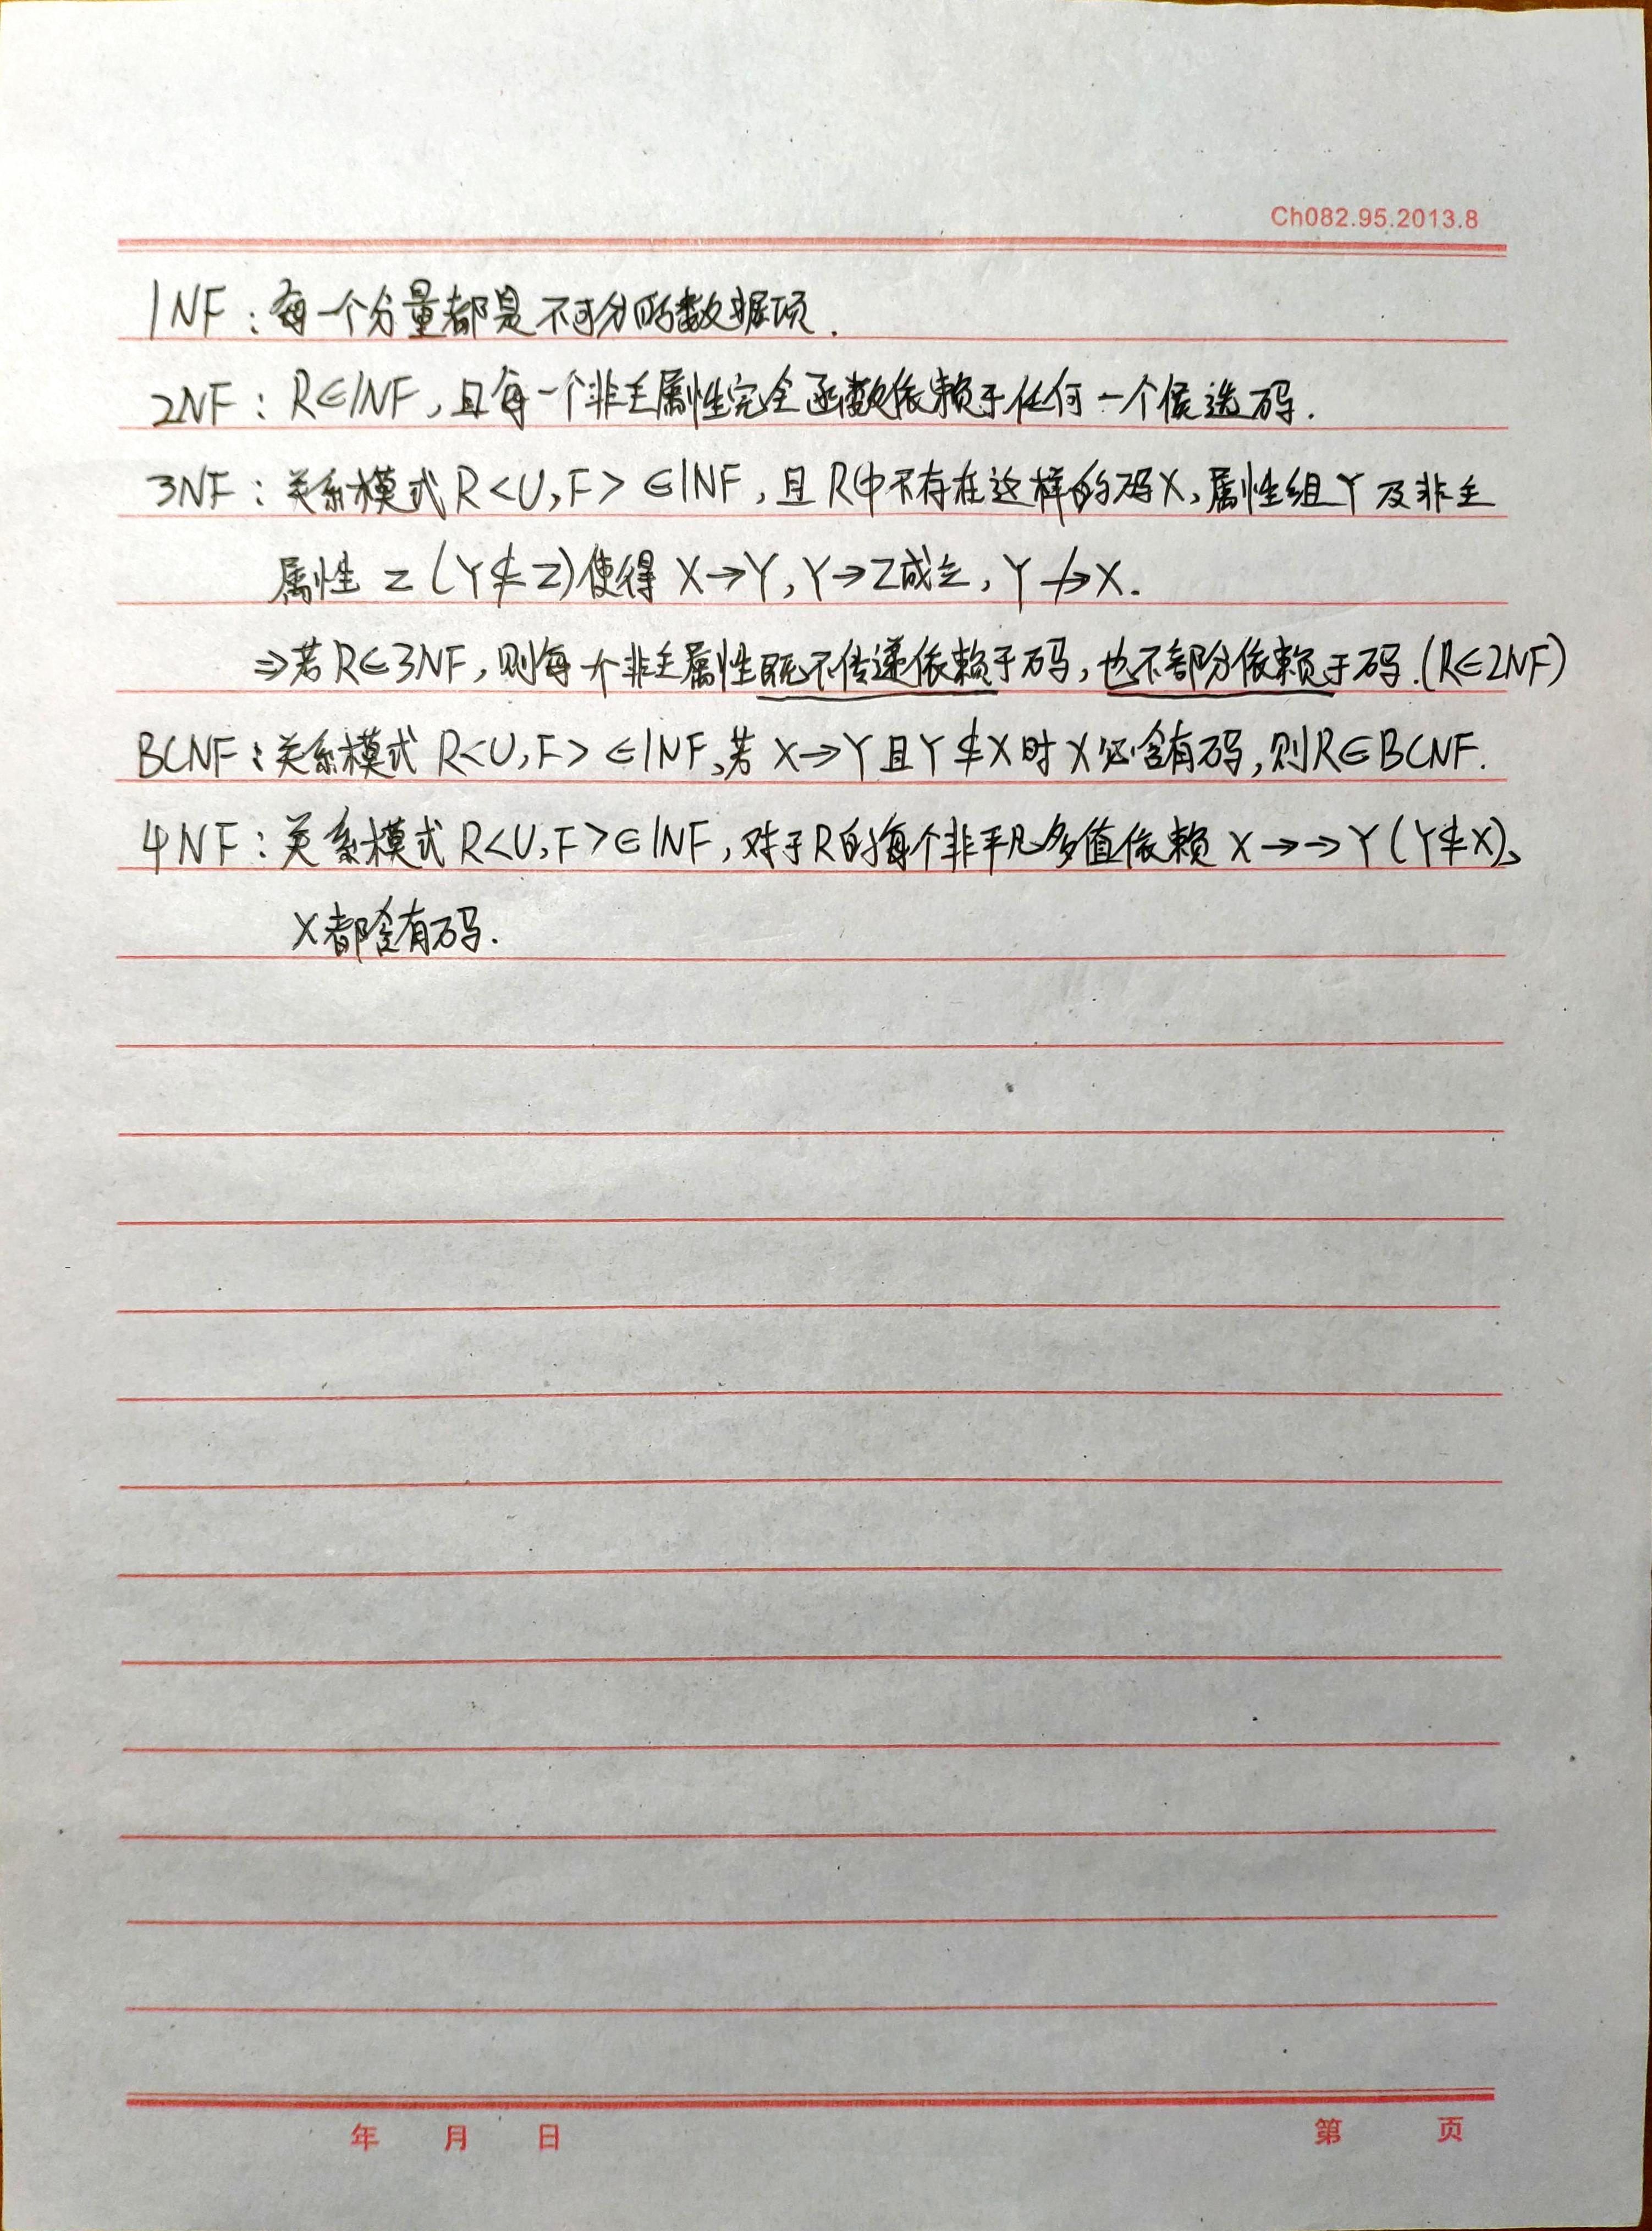 Ch082.95.2013.8
1NF：每一个分量都是不可分的数据项.
2NF：R∈1NF，且每一个非主属性完全函数依赖于任何一个候选码.
3NF：关系模式 R<U,F> ∈1NF，且R中不存在这样的码X，属性组Y及非主
属性 Z (Y⊈Z)使得 X→Y，Y→Z成立，Y↛X.
⇒若R∈3NF，则每个非主属性既不传递依赖于码，也不部分依赖于码.(R∈2NF)
BCNF：关系模式 R<U,F> ∈1NF,若 X→Y且Y⊈X时X必含有码，则R∈BCNF.
4NF：关系模式 R<U,F>∈1NF，对于R的每个非平凡多值依赖 X→→Y (Y⊈X)、
X都含有码.
年 月 日 第 页